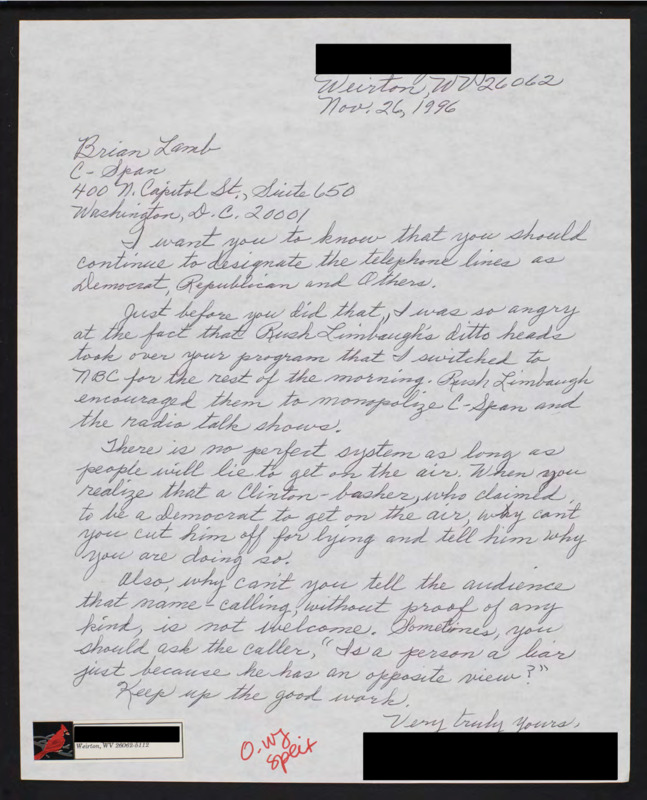 Weirton, WV 26062
Nov. 26, 1996
Brian Lamb
C-Span
400 N. Capitol St., Suite 650
Washington, D.C. 20001
I want you to know that you should
continue to designate the telephone lines as
Democrat, Republican and Others.
Just before you did that, I was so angry
at the fact that Rush Limbaugh's ditto heads
took over your program that I switched to
NBC for the rest of the morning. Rush Limbaugh
encouraged them to monopolize C-Span and
the radio talk shows.
There is no perfect system as long as
people will lie to get on the air. When you
realize that a Clinton-basher, who claimed
to be a Democrat to get on the air, why can't
you cut him off for lying and tell him why
you are doing so.
Also, why can't you tell the audience
that name-calling, without proof of any
kind, is not welcome. Sometimes, you
should ask the caller, "Is a person a liar
just because he has an opposite view?"
Keep up the good work.
Very truly yours,
Weirton, WV 26062-5112
O. wy
split